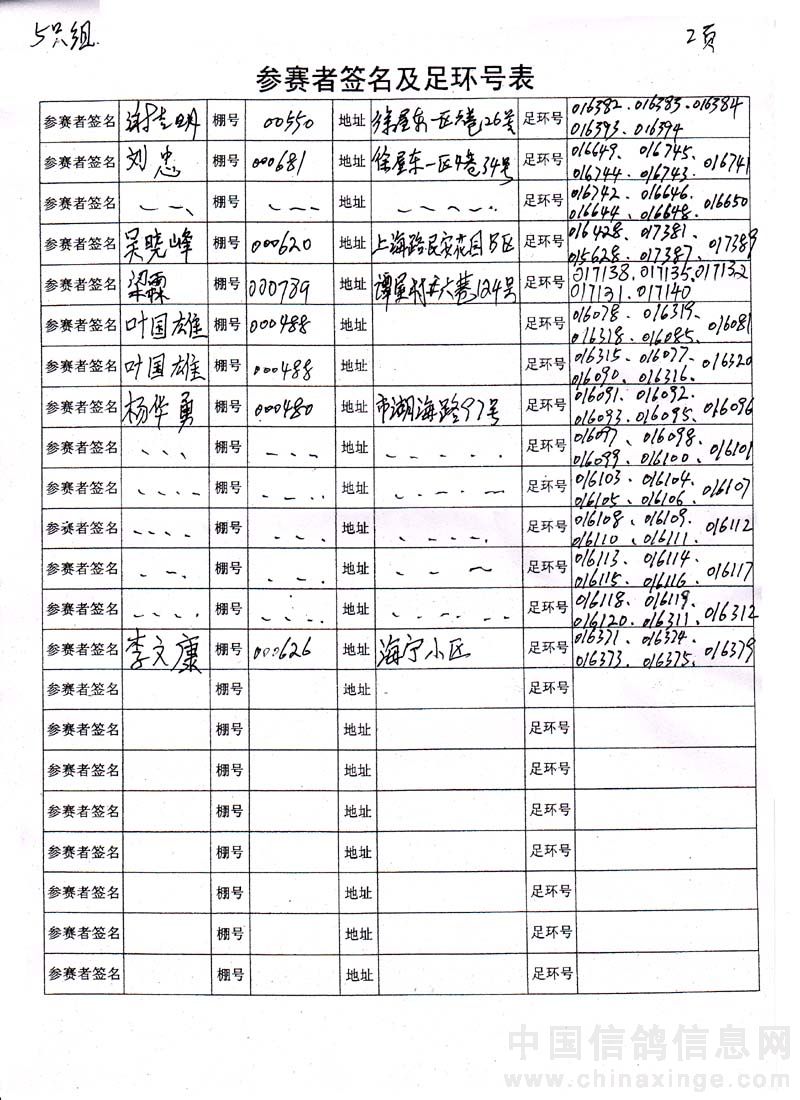 5只组
2页
参赛者签名及足环号表
参赛者签名 谢志明 棚号 00550 地址 徐屋东一区六巷26号 足环号 016382、016383、016384
016393、016394
参赛者签名 刘忠 棚号 000681 地址 徐屋东一区4巷34号 足环号 016649、016745、016741
016744、016743、
参赛者签名 棚号 地址 足环号 016742、016646、016650
016644、016648、
参赛者签名 吴晓峰 棚号 000620 地址 上海路民安花园B区 足环号 016428、017381、017389
015628、017387、
参赛者签名 梁霖 棚号 000739 地址 谭屋村 六巷124号 足环号 017138、017135、017132
017131、017140
参赛者签名 叶国雄 棚号 000488 地址 足环号 016078、016319、016081
016318、016085、
参赛者签名 叶国雄 棚号 000488 地址 足环号 016315、016077、016320
016090、016316、
参赛者签名 杨华勇 棚号 000480 地址 市湖海路97号 足环号 016091、016092、016096
016093、016095、
参赛者签名 棚号 地址 足环号 016097、016098、016101
016099、016100、
参赛者签名 棚号 地址 足环号 016103、016104、016107
016105、016106、
参赛者签名 棚号 地址 足环号 016108、016109、016112
016110、016111、
参赛者签名 棚号 地址 足环号 016113、016114、016117
016115、016116、
参赛者签名 棚号 地址 足环号 016118、016119、016312
016120、016311、
参赛者签名 李文康 棚号 000626 地址 海宁小区 足环号 016371、016374、016379
016373、016375、
参赛者签名 棚号 地址 足环号
参赛者签名 棚号 地址 足环号
参赛者签名 棚号 地址 足环号
参赛者签名 棚号 地址 足环号
参赛者签名 棚号 地址 足环号
参赛者签名 棚号 地址 足环号
参赛者签名 棚号 地址 足环号
参赛者签名 棚号 地址 足环号
中国信鸽信息网
www.chinaxinge.com